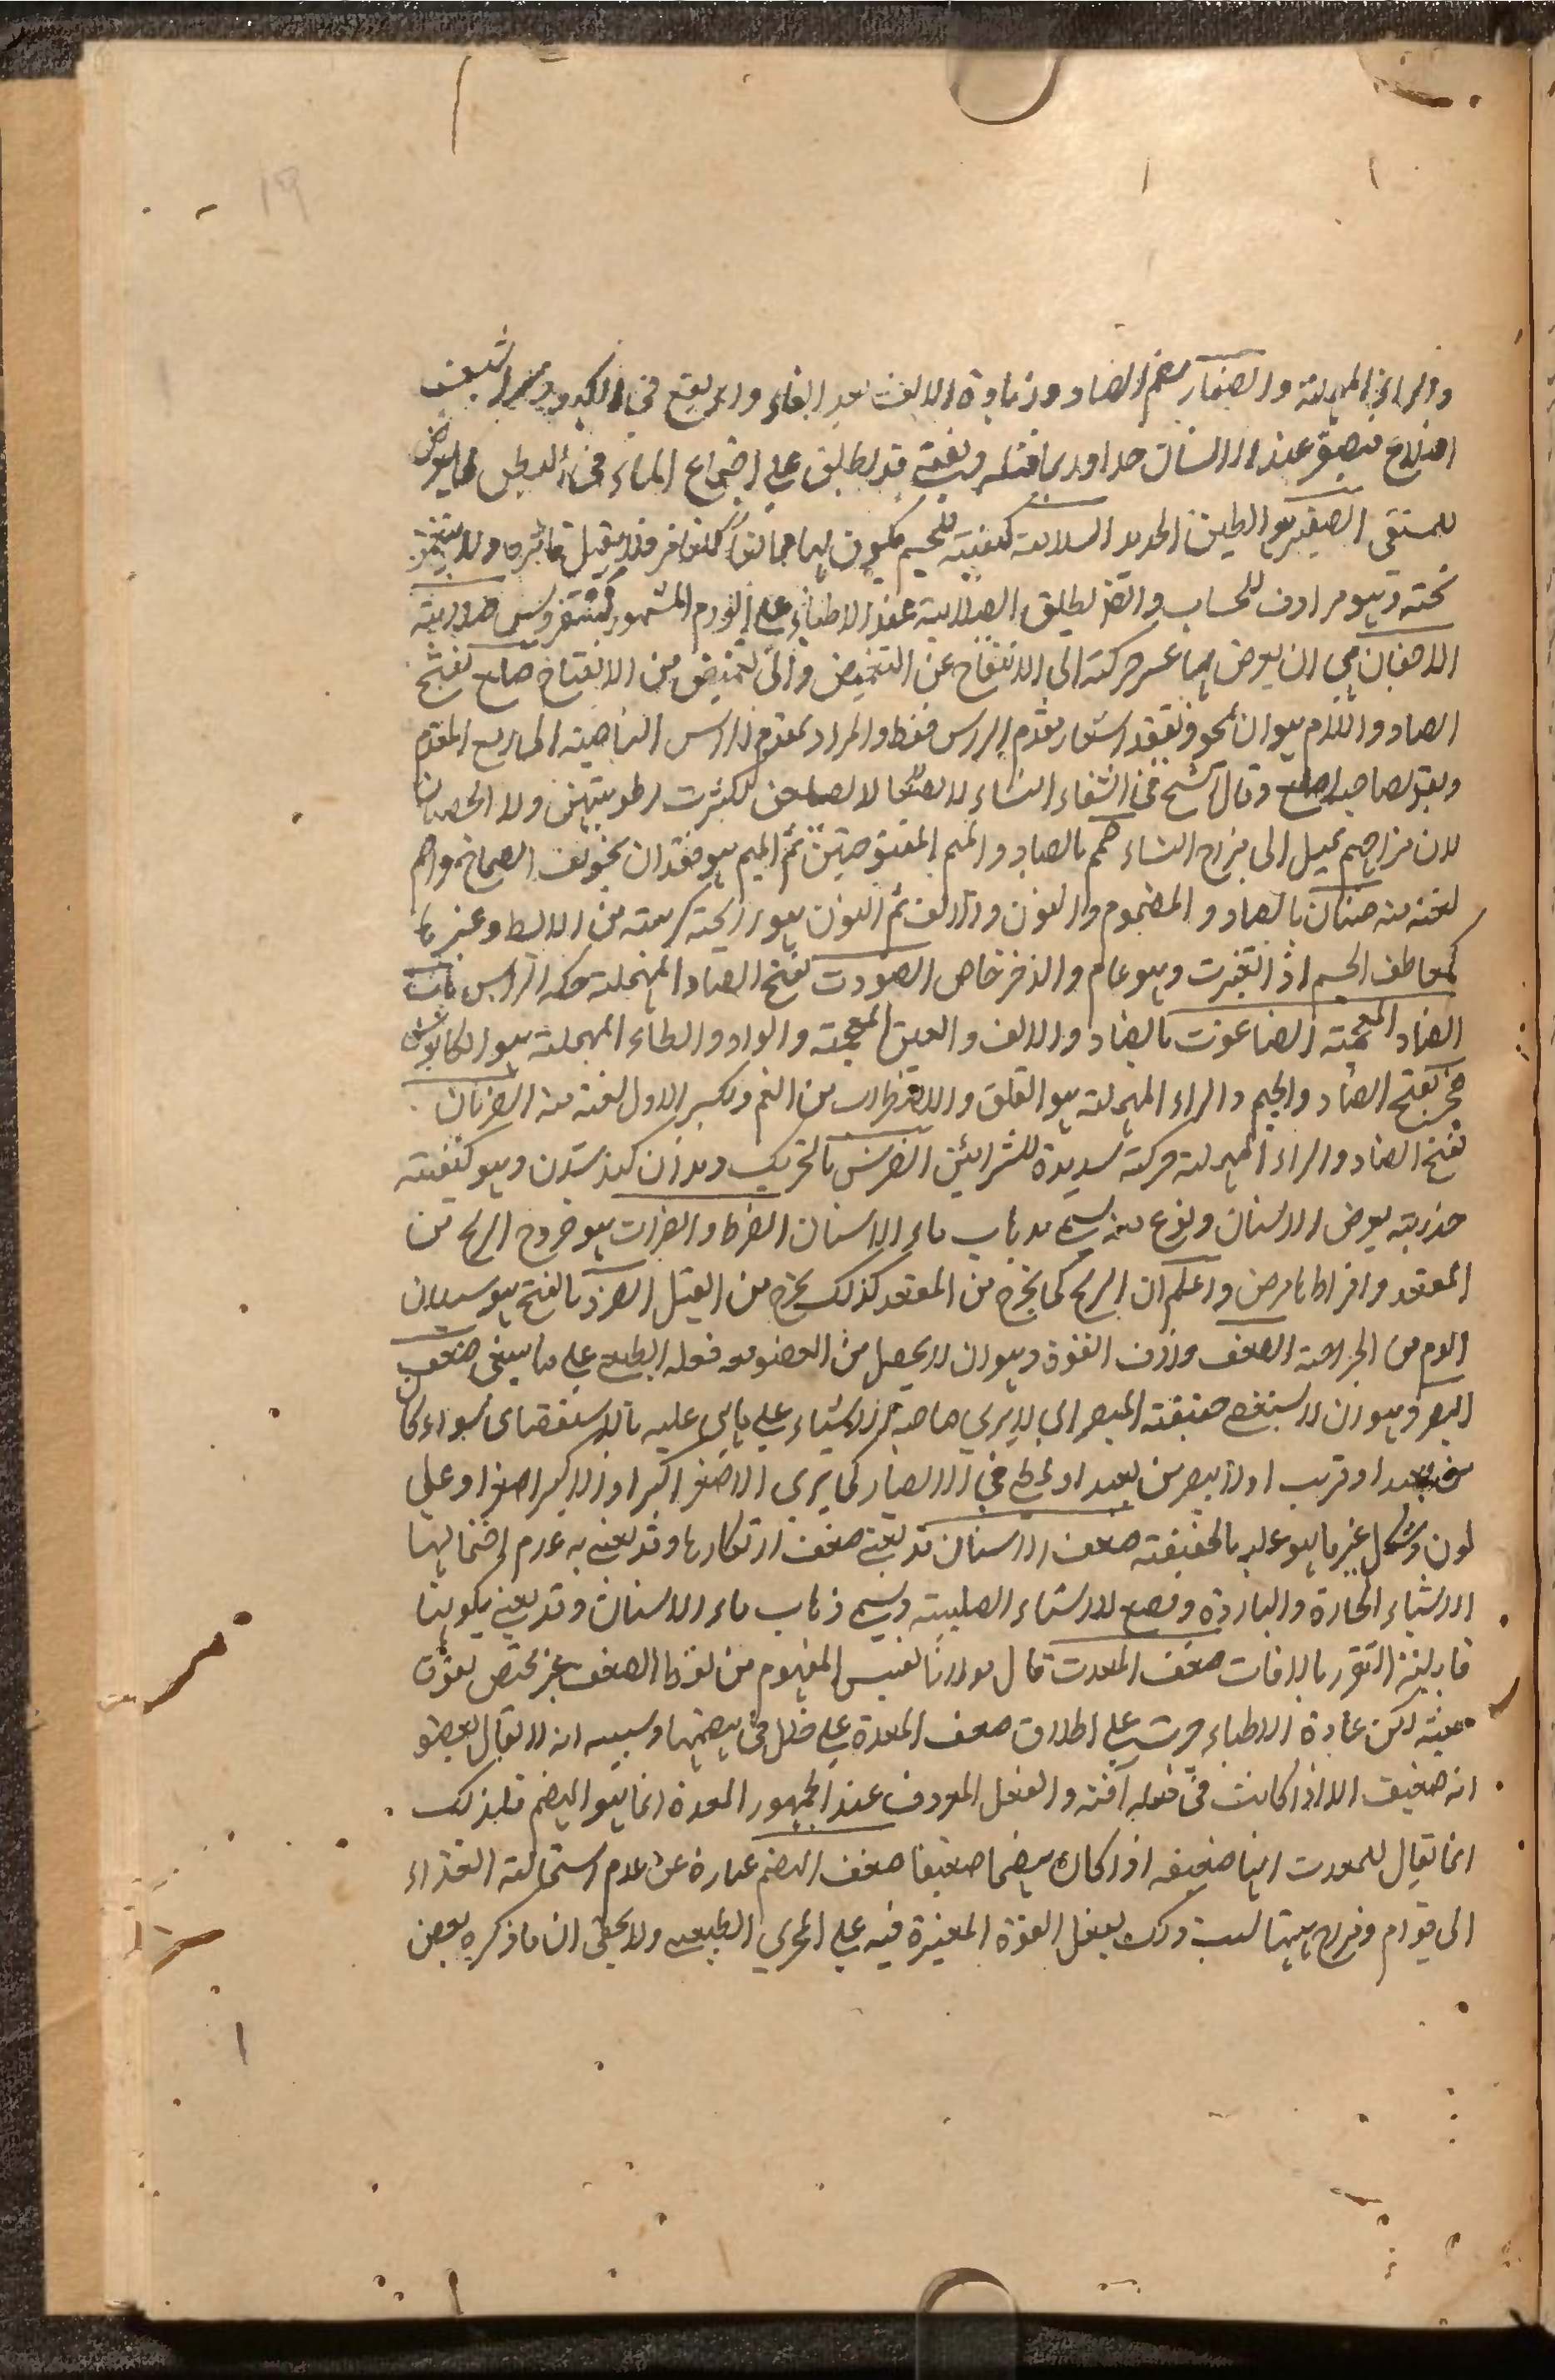 والراء المهملة والصفار بضم الصاد وزيادة الالف بعد الفاء دابر يقع في الكبد و شراسيف
اضلاع فيصفر عنه الانسان جدا وربما قتله وقد يطلق على اجتماع الماء في البطن كما يعرض
للمستقي الصفير هو الطين الحديد الصلابة كيفية للجسم يكون بها ممانعا للغامز فلا يقبل تاثيره ولا ينغمز
تحته وهو مرادف للجساء والضد يطلق الصلابة عند الاطباء على الورم المشهور بسقيروس صلابة
الاجفان هي ان يعرض لها عسر حركة الى الانفتاح عن التغميض والى التغميض من الانفتاح صلع بفتح
الصاد واللام هو ان ينحو وتفقد اشعار مقدم الراس فقط والمراد بمقدم الراس الناصية الى اربع المقدم
ويقال لصاحبه اصلع وقال الشيخ في الشفاء النساء لا يصلعن لكثرت رطوبتهن ولا الخصيان
لان مزاجهم يميل الى مزاج النساء صمم بالصاد والميم المفتوحتين ثم الميم هو فقدان تجويف الصماخ واصم
لغته منه صنان بالصاد المضموم والنون والالف ثم النون هو رايحة كريهة من الابط وغيرها
كمعاطف الجسم اذا تغيرت وهو عام والذفر خاص الصودت بفتح الصاد المهملة حكة الراس باب
الضاد المعجمة الضاغوت بالضاد والالف والغين المعجمة والواو والطاء المهملة هو الكابوس
ضجر بفتح الضاد والجيم والراء المهملة هو القلق والاضطراب من الغم وبكسر الاول لغة منه الضربان
بفتح الضاد والراء المهملة حركة شديدة للشرائين الضرس بالتحريك دندان كند شدن وهو كيفية
خدرية يعرض الاسنان ونوع منه يسمى ذهاب ماء الاسنان الضرط والضراط هو خروج الريح من
المقعد وافراطها مرض واعلم ان الريح كما يخرج من المقعد كذلك يخرج من القبل الضرو بالفتح هو سيلان
الدم من الجراحة الضعف مرادف القوة وهو ان لا يحصل من العضو معه فعله الطبيعي على ما ينبغي ضعف
البصر هو ان لا يستقصى حقيقة المبصر اي لا يرى صاحبه الاشياء على ما هي عليه بالاستقصاى سواء كان
من بعيد او قريب او لا يبصر من بعيد او يخطي في الابصار كما يرى الاصغر اكبر او الاكبر اصغر او على
لون وشكل غير ما هو عليه بالحقيقة ضعف الاسنان قد يعنى ضعف ارتكازها وقد يعنى به عدم احتمالها
الاشياء الحارة والباردة ومضغ الاشياء الصلبة ويسمى ذهاب ماء الاسنان وقد يعنى بكونها
قابلية التقرر بالافات ضعف المعدت قال مولانا نفيس المفهوم من لفظ الضعف غير مختص بقوة
معينة لكن عادة الاطباء جرت على اطلاق ضعف المعدة على خلل في هضمها وسببه انه لا يقال لعضو
انه ضعيف الا اذا كانت في فعله آفة والفعل المعروف عند الجمهور المعدة انما هو الهضم فلذلك
انما يقال للمعدت انها ضعيفه اذا كان هضمها ضعيفا ضعف الهضم عبارة عن عدم استحالة الغذاء
الى قوام ومزاج وسبب ذلك بفعل القوة المغيرة فيه على المجرى الطبيعي ولا يخفى ان ما ذكره بعض